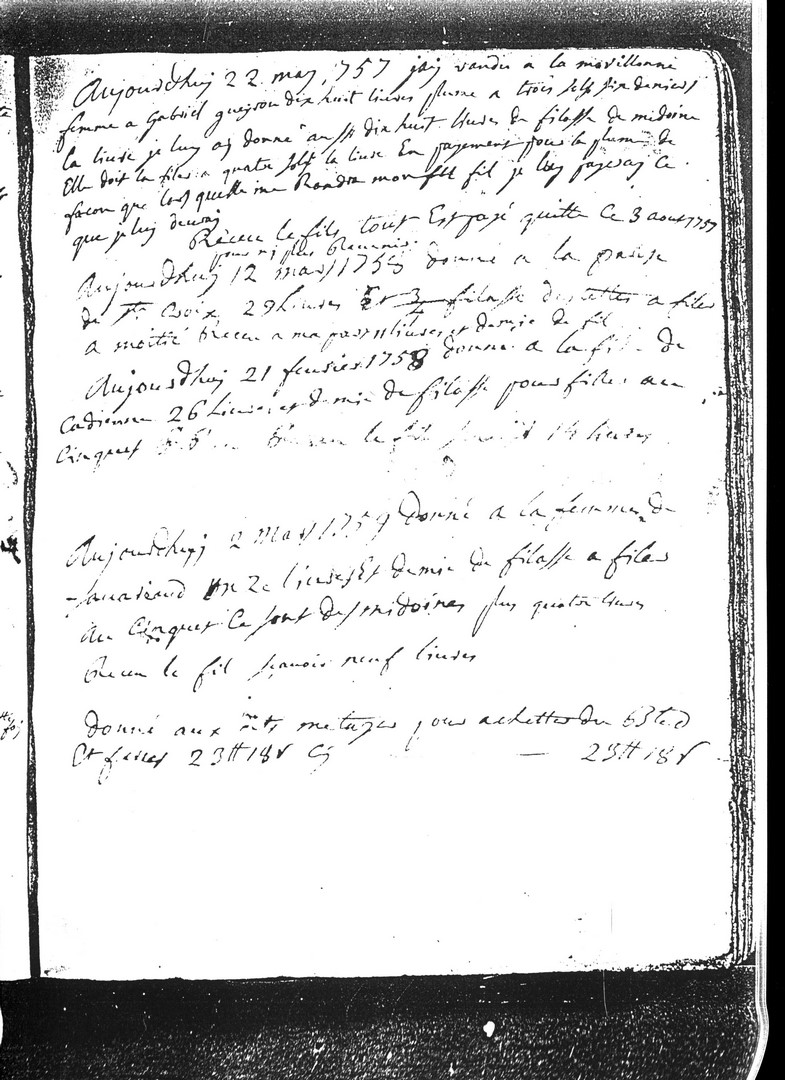 Aujourdhuy 22 may 1757 jay vandu a la morillonne
femme a Gabriel gueyrou dix huit liures plume a trois sols six deniers
la liure je luy ay donné aussy dix huit liures de filasse de midoine
Elle doit la filer a quatre sols la liure En payement pour la plume de
facon que lors quelle me Randra mon fil je luy payeray ce
que je luy devray
Receu le fil tout Est payé quitte Ce 3 aoust 1757
Aujourdhuy 12 mars 1758 donné a la
de Ste Croix 29 liures Et 3/4 filasse a filer
a moitié Receu a ma part 11 liures et demie de fil
Aujourdhuy 21 feurier 1758 donné a la de
Cadienne 26 liures et demie de filasse pour filer au
Cinquet Receu le fil 14 liures
Aujourdhuy 2 mars 1759 donné a la femme de
liures Et demie de filasse a filer
au Cinquet Ce sont des midoines plus quatre liures
Receu le fil scauoir neuf liures
donné aux metayer pour achetter du
Et 23tt 18s Cy — 23tt 18s